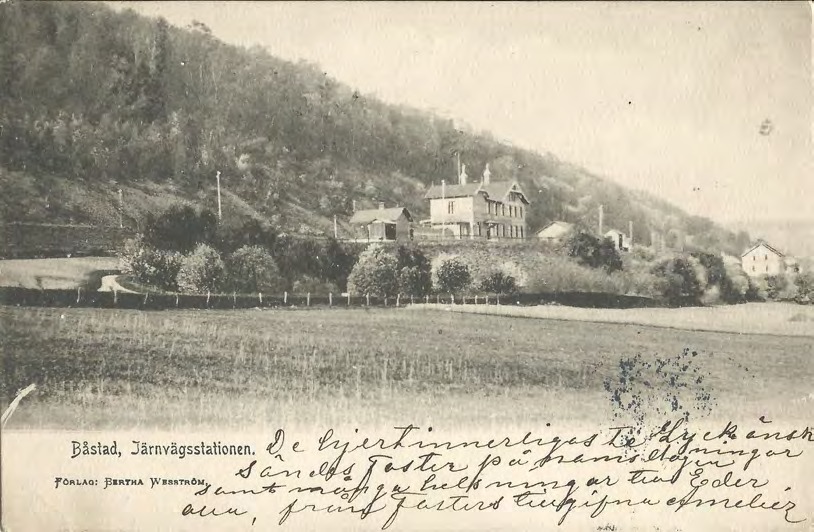 Båstad, Järnvägsstationen.
FÖRLAG: BERTHA WESSTRÖM,
De hjertinnerligaste Lyckönsk
ningar
sändes Faster på namsdagen
samt många helsningar till Eder
alla, från Fasters tillgifna Amelie